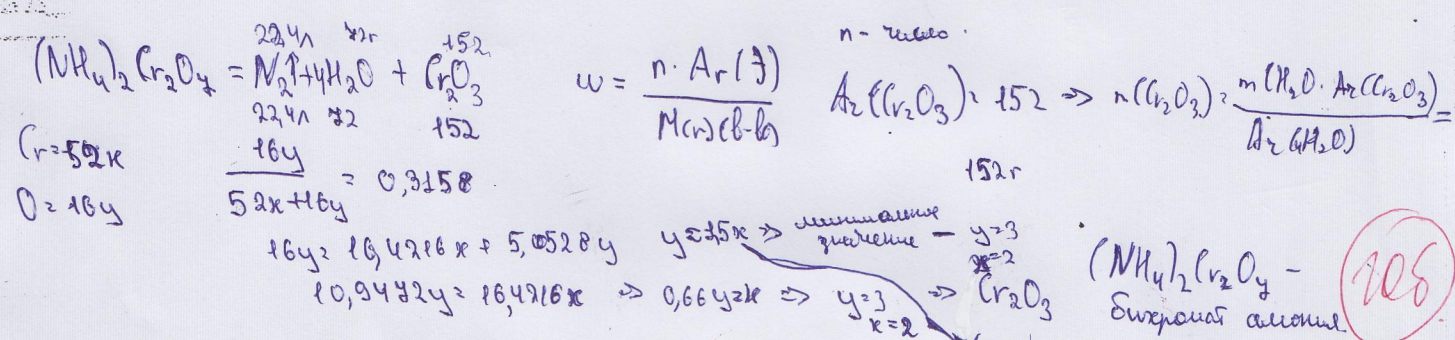 22,4л 72г 152
(NH₄)₂Cr₂O₇ = N₂↑+4H₂O + Cr₂O₃
22,4л 72 152
ω = n · Ar(Э) / M(r)(в-ва)
n - число.
Ar(Cr₂O₃) = 152 => m(Cr₂O₃) = m(H₂O · Ar(Cr₂O₃) / Ar(4H₂O) =
152г
Cr=52x
O=16y
16y / 52x+16y = 0,3158
16y = 16,4216x + 5,0528y
y=1,5x => минимальное значение - y=3 x=2
10,9472y = 16,4216x => 0,66y=x => y=3 x=2 => Cr₂O₃
(NH₄)₂Cr₂O₇ -
бихромат амония.
10б